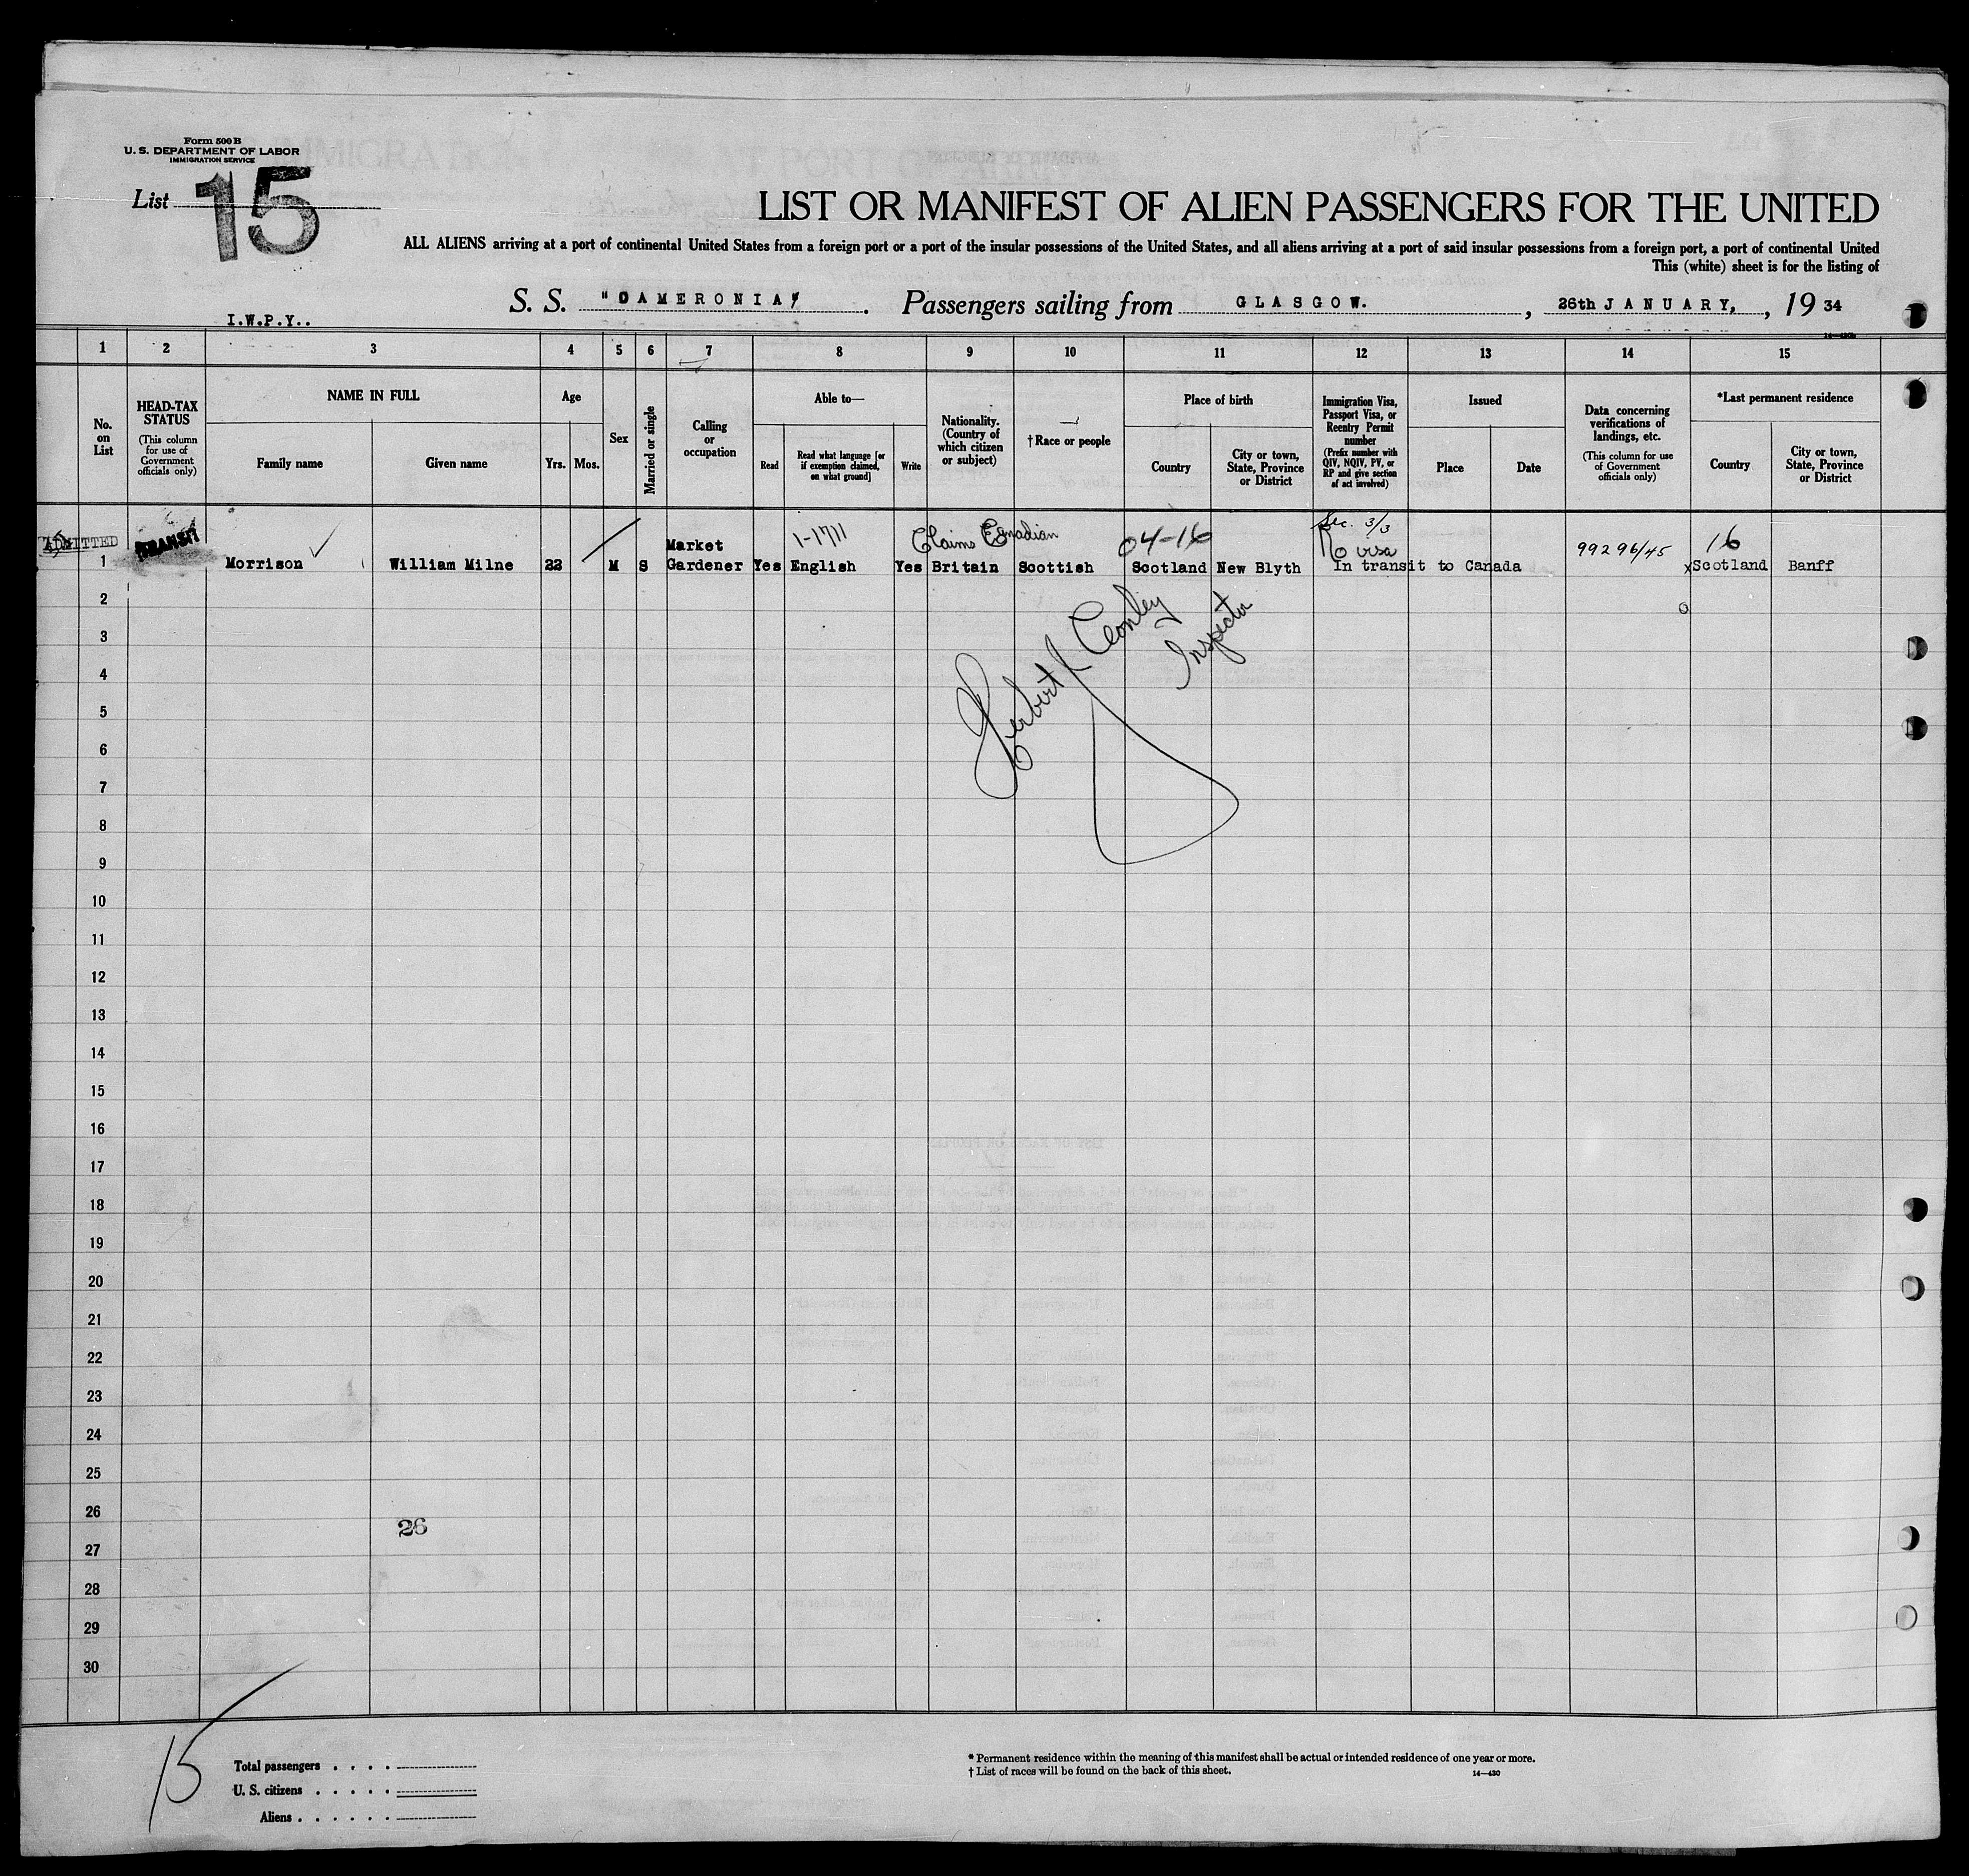 Form 500 B
U. S. DEPARTMENT OF LABOR
IMMIGRATION SERVICE
List 15
LIST OR MANIFEST OF ALIEN PASSENGERS FOR THE UNITED
ALL ALIENS arriving at a port of continental United States from a foreign port or a port of the insular possessions of the United States, and all aliens arriving at a port of said insular possessions from a foreign port, a port of continental United
This (white) sheet is for the listing of
S. S. "CAMERONIA" Passengers sailing from GLASGOW. , 26th JANUARY, , 19 34
I.W.P.Y..
14—430
1 2 3 4 5 6 7 8 9 10 11 12 13 14 15
No. on List
HEAD-TAX STATUS (This column for use of Government officials only)
NAME IN FULL
Family name
Given name
Age
Yrs. Mos.
Sex
Married or single
Calling or occupation
Able to—
Read
Read what language [or if exemption claimed, on what ground]
Write
Nationality. (Country of which citizen or subject)
†Race or people
Place of birth
Country
City or town, State, Province or District
Immigration Visa, Passport Visa, or Reentry Permit number (Prefix number with QIV, NQIV, PV, or RP and give section of act involved)
Issued
Place
Date
Data concerning verifications of landings, etc. (This column for use of Government officials only)
*Last permanent residence
Country
City or town, State, Province or District
ADMITTED TRANSIT 1-1711 Claims Canadian 04-16 Sec. 3/3 No visa 99296/45 16
Market
1 Morrison William Milne 22 M S Gardener Yes English Yes Britain Scottish Scotland New Blyth In transit to Canada xScotland Banff
2
3
4
5
6
7
8
9
10
11
12
13
14
15
16
17
18
19
20
21
22
23
24
25
26
27
28
29
30
Herbert Conley
Inspector
26
15
Total passengers
U. S. citizens
Aliens
* Permanent residence within the meaning of this manifest shall be actual or intended residence of one year or more.
† List of races will be found on the back of this sheet.
14—430